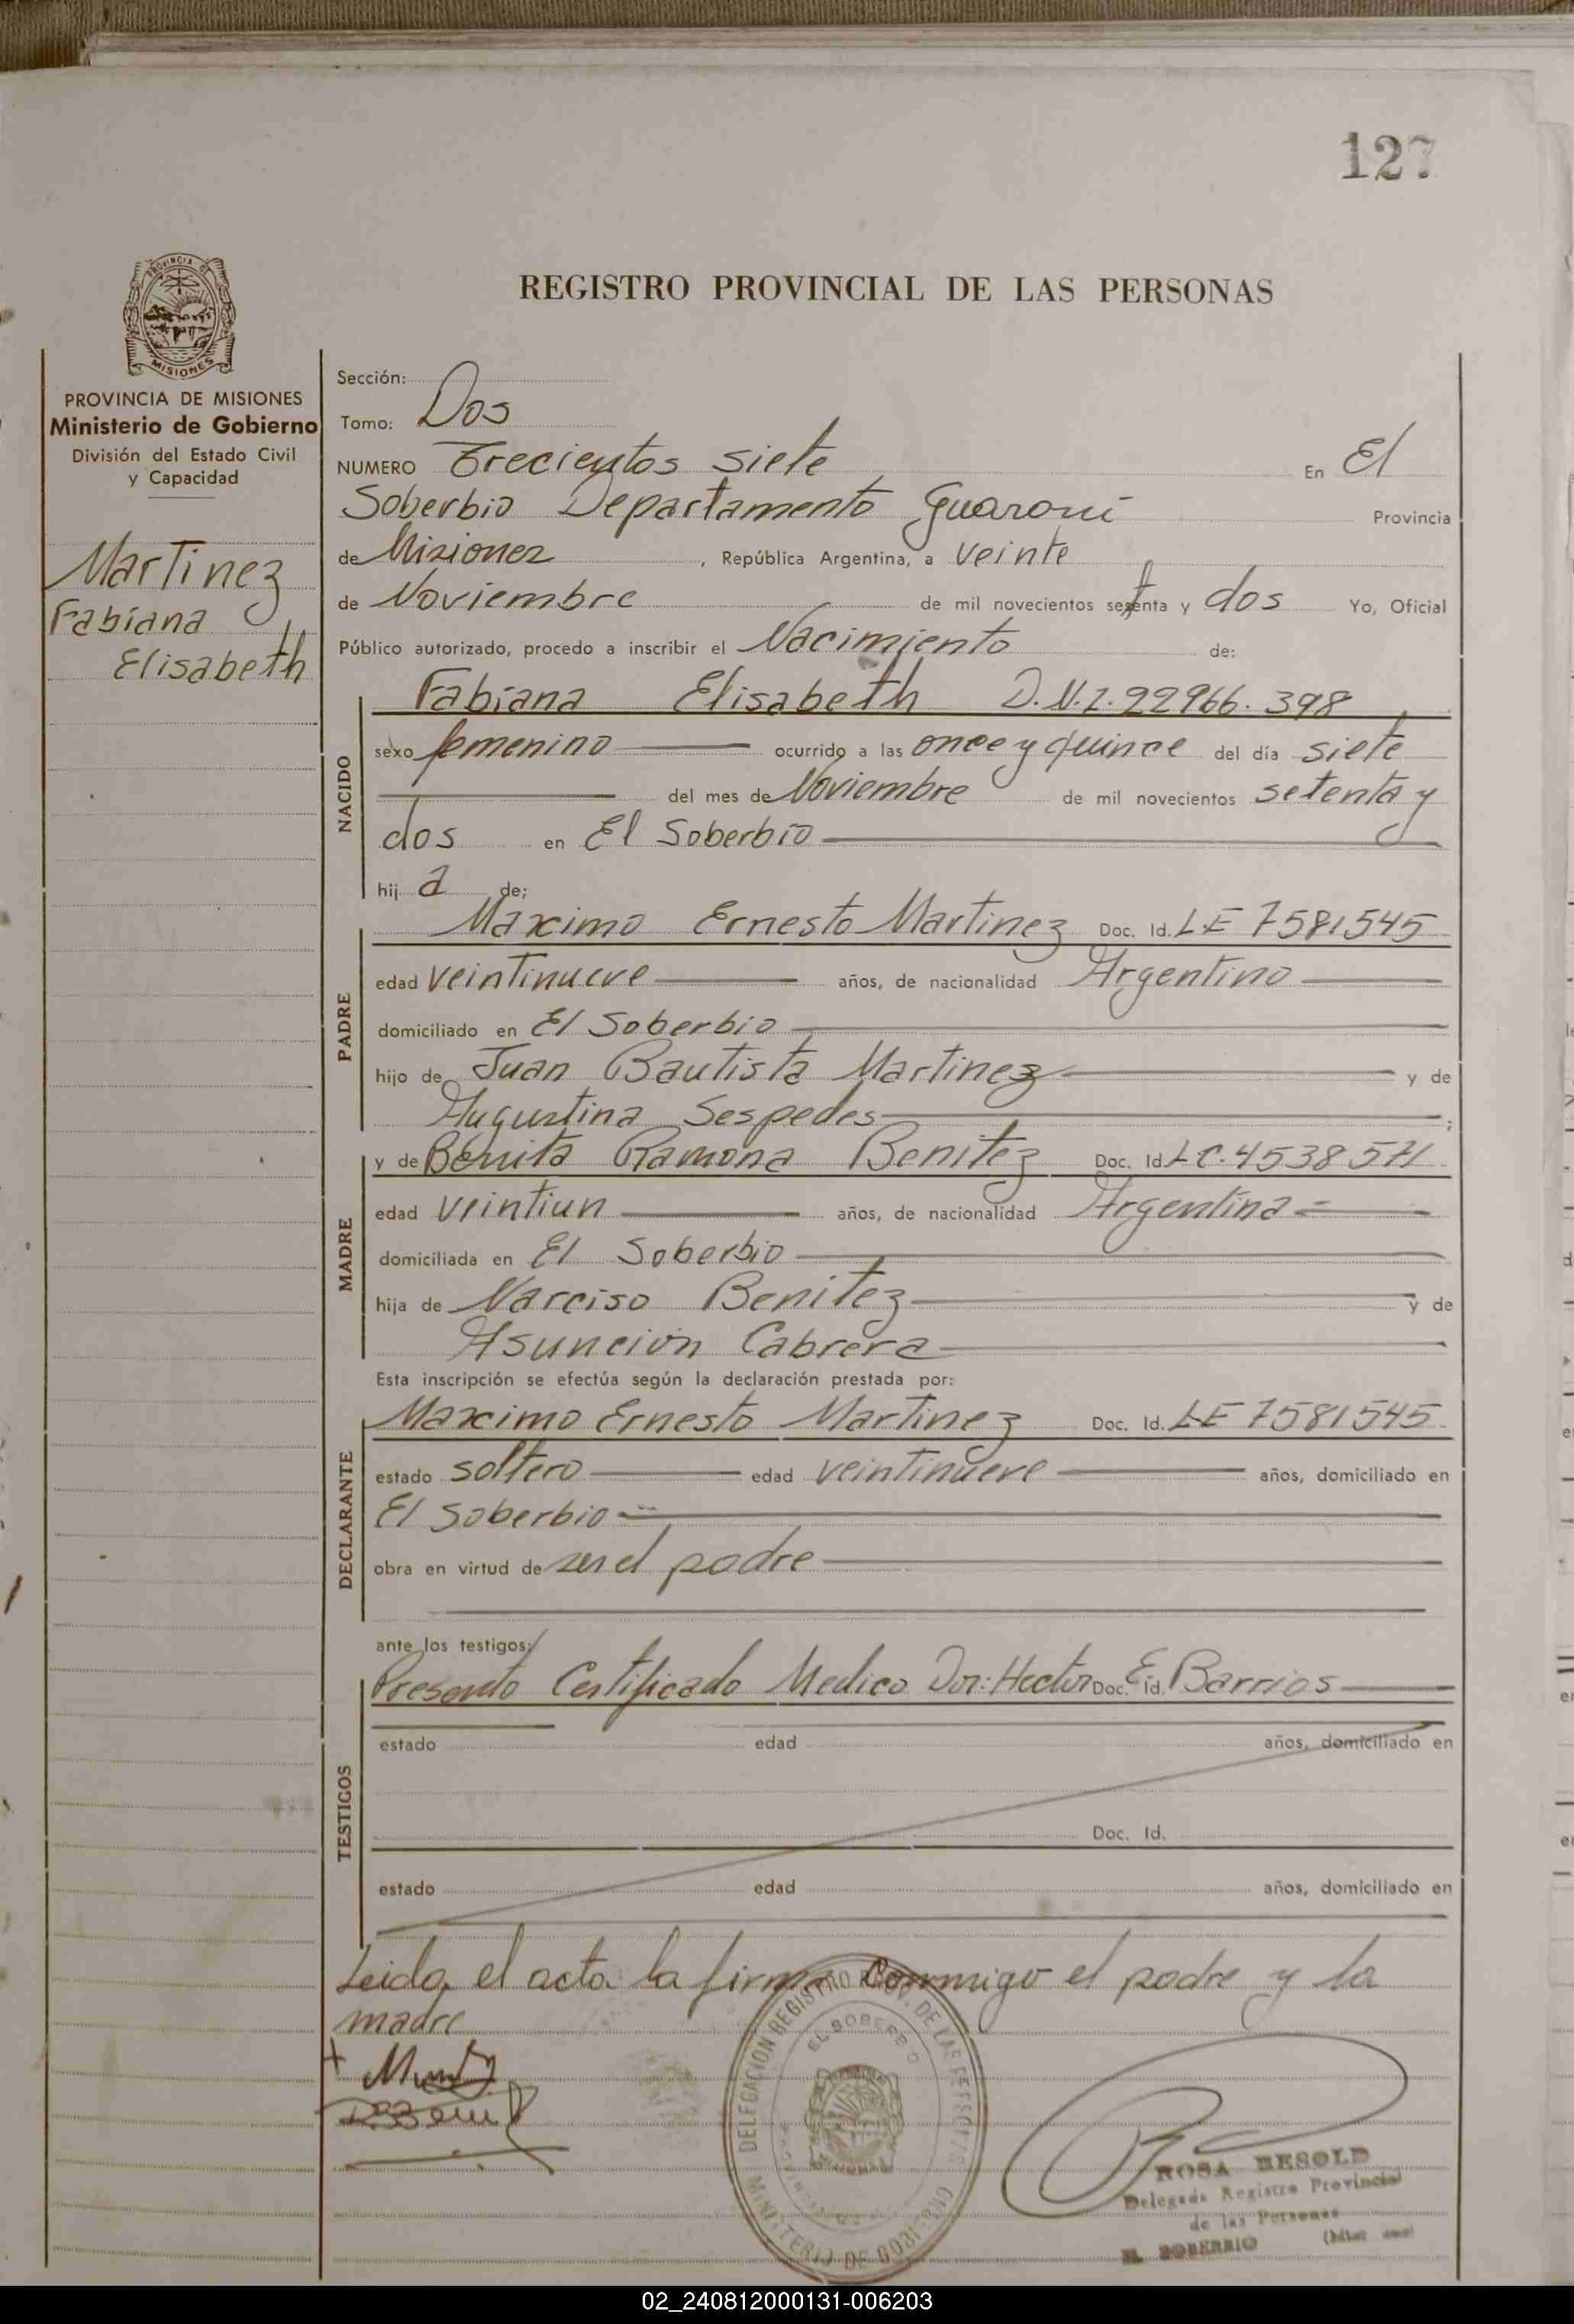 127
REGISTRO PROVINCIAL DE LAS PERSONAS
PROVINCIA DE
MISIONES
PROVINCIA DE MISIONES
Ministerio de Gobierno
División del Estado Civil
y Capacidad
Martinez
Fabiana
Elisabeth
Sección:
Tomo: Dos
NUMERO Trecientos siete En El
Soberbio Departamento Guaraní Provincia
de Misiones, República Argentina, a veinte
de Noviembre de mil novecientos setenta y dos Yo, Oficial
Público autorizado, procedo a inscribir el Nacimiento de:
NACIDO
Fabiana Elisabeth D.N.I. 22966.398
sexo femenino ocurrido a las once y quince del día siete
del mes de Noviembre de mil novecientos setenta y
dos en El Soberbio
hij a de;
PADRE
Maximo Ernesto Martinez Doc. Id. LE 7581545
edad veintinueve años, de nacionalidad Argentino
domiciliado en El Soberbio
hijo de Juan Bautista Martinez y de
Augustina Sespedes ;
MADRE
y de Benita Ramona Benitez Doc. Id. LC. 4538571
edad veintiun años, de nacionalidad Argentina
domiciliada en El Soberbio
hija de Narciso Benitez y de
Asunción Cabrera
Esta inscripción se efectúa según la declaración prestada por:
DECLARANTE
Maximo Ernesto Martinez Doc. Id. LE 7581545
estado soltero edad veintinueve años, domiciliado en
El Soberbio
obra en virtud de ser el padre
ante los testigos:
TESTIGOS
Presento Certificado Medico Dor: Hector Doc. Id. E. Barrios
estado edad años, domiciliado en
Doc. Id.
estado edad años, domiciliado en
Leida el acta la firma conmigo el padre y la
madre
DELEGACION REGISTRO PROV. DE LAS PERSONAS
EL SOBERBIO
MINISTERIO DE GOBIERNO
ROSA RESOLD
Delegada Registro Provincial
de las Personas
EL SOBERBIO
02_240812000131-006203